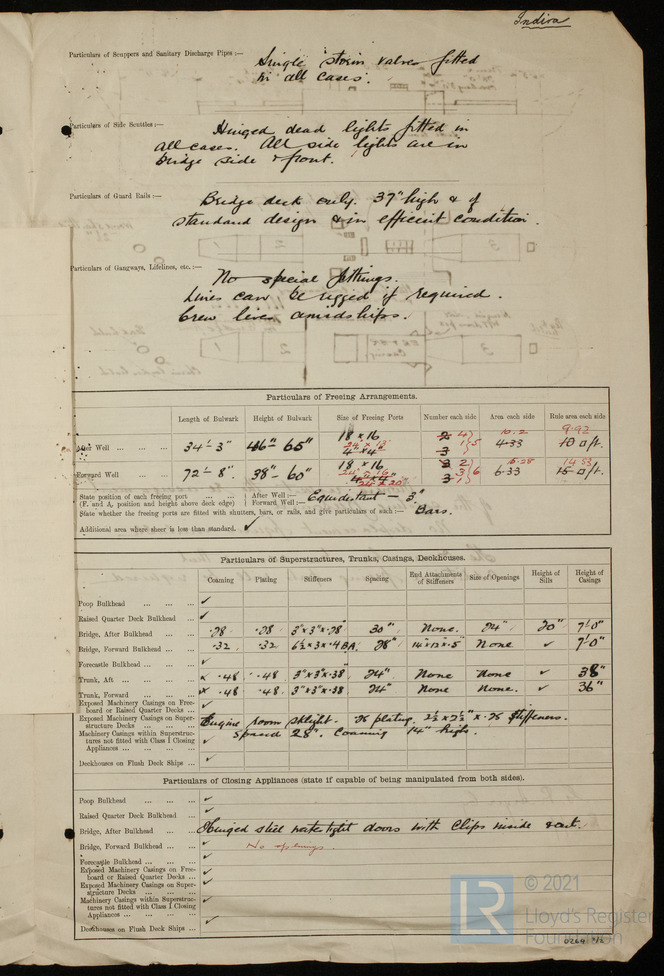 Indira
Particulars of Scuppers and Sanitary Discharge Pipes :— Single storm valves fitted
in all cases.
Particulars of Side Scuttles :— Hinged dead lights fitted in
all cases. All side lights are in
bridge side & front.
Particulars of Guard Rails :— Bridge deck only. 37" high & of
standard design & in efficient condition.
Particulars of Gangways, Lifelines, etc. :— No special fittings.
Lines can be rigged if required.
Crew lives amidships.
Particulars of Freeing Arrangements.
Length of Bulwark Height of Bulwark Size of Freeing Ports Number each side Area each side Rule area each side
After Well 34'-3" 46"-65" 18 x 16 2 4 5 10.2 4.33 9.92
Forward Well 72'-8" 38"-60" 18 x 16 2 6 6.33 14.53
State position of each freeing port After Well :— Equidistant — 3"
(F. and A. position and height above deck edge) Forward Well :—
State whether the freeing ports are fitted with shutters, bars, or rails, and give particulars of such :— Bars.
Additional area where sheer is less than standard. ✓
Particulars of Superstructures, Trunks, Casings, Deckhouses.
Coaming Plating Stiffeners Spacing End Attachments of Stiffeners Size of Openings Height of Sills Height of Casings
Poop Bulkhead ✓
Raised Quarter Deck Bulkhead ✓
Bridge, After Bulkhead .28 .28 3"x3"x.28" 30" None. 24" 20" 7'0"
Bridge, Forward Bulkhead .32 .32 6½ x 3 x .4 BA. 28" None ✓ 7'0"
Forecastle Bulkhead ✓
Trunk, Aft .48 .48 3"x3"x.38" 24" None None ✓ 38"
Trunk, Forward .48 .48 3"x3"x.38 24" None None. ✓ 36"
Exposed Machinery Casings on Free-
board or Raised Quarter Decks ✓
Exposed Machinery Casings on Super-
structure Decks Engine room skylight. .25 plating. 2½ x 2½" x .25 stiffeners.
Machinery Casings within Superstruc-
tures not fitted with Class I Closing
Appliances ✓ Spaced 28". Coaming 14" high.
Deckhouses on Flush Deck Ships ✓
Particulars of Closing Appliances (state if capable of being manipulated from both sides).
Poop Bulkhead ✓
Raised Quarter Deck Bulkhead ✓
Bridge, After Bulkhead Hinged steel watertight doors with clips inside & out.
Bridge, Forward Bulkhead ✓ No openings.
Forecastle Bulkhead ✓
Exposed Machinery Casings on Free-
board or Raised Quarter Decks ✓
Exposed Machinery Casings on Super-
structure Decks ✓
Machinery Casings within Superstruc-
tures not fitted with Class I Closing
Appliances ✓
Deckhouses on Flush Deck Ships ✓
LR © 2021
Lloyd's Register
Foundation